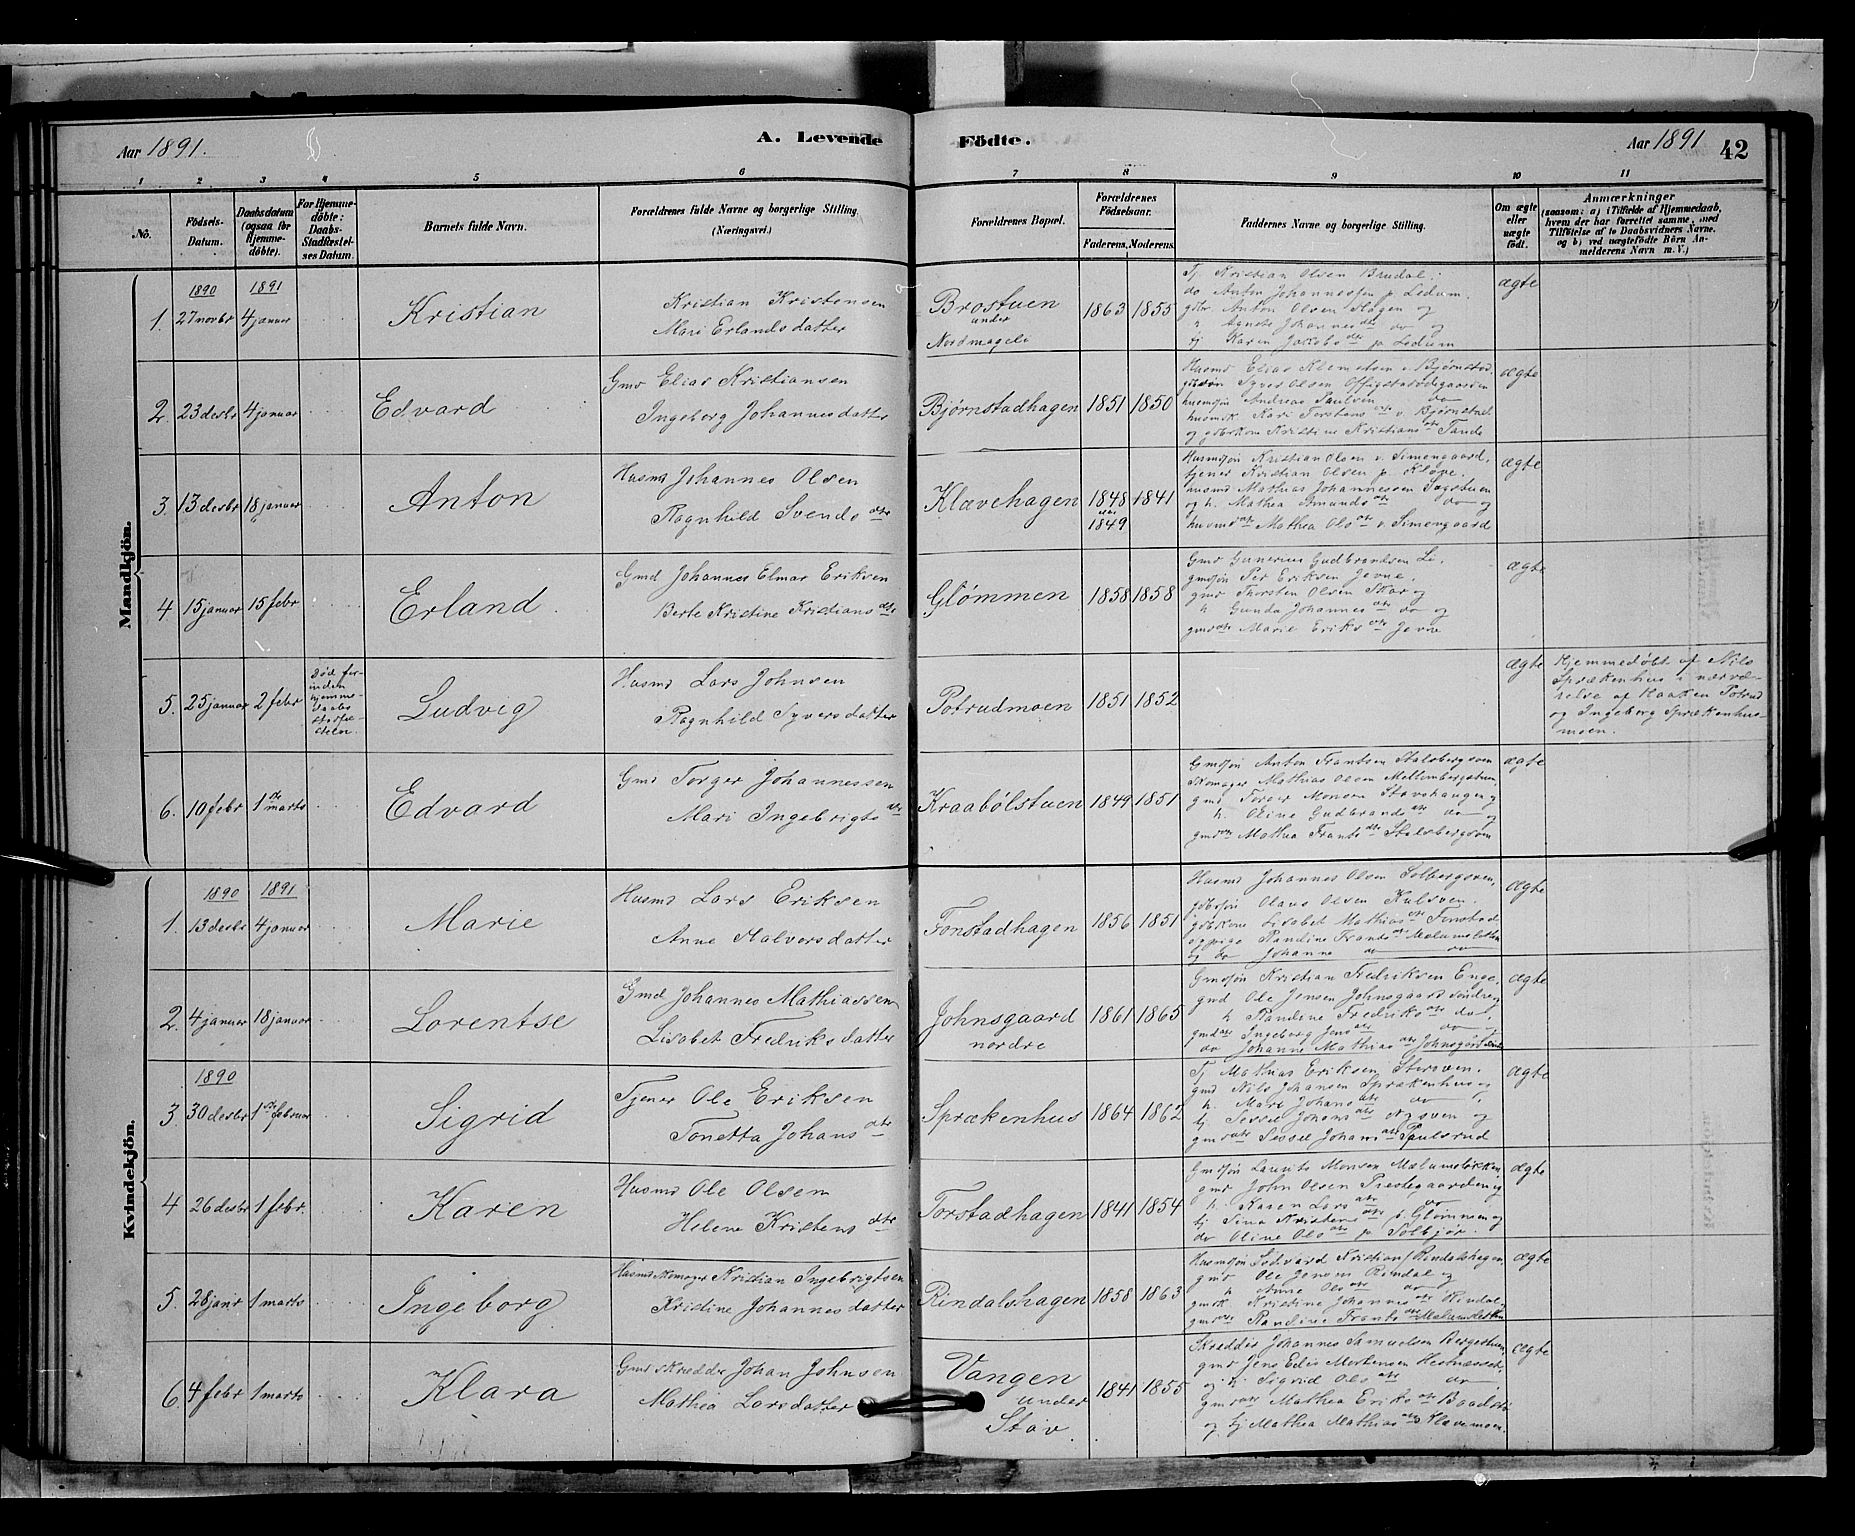 Aar 1891.
A. Levende
Födte.
Aar 1891
42
1 2 3 4 5 6 7 8 9 10 11
No.
Födsels-
Datum.
Daabsdatum
(ogsaa for
Hjemme-
döbte).
For Hjemme-
döbte:
Daabs-
Stadfæstel-
ses Datum.
Barnets fulde Navn.
Forældrenes fulde Navne og borgerlige Stilling
(Næringsvei.)
Forældrenes Bopæl.
Forældrenes
Födselsaar.
Faderens. Moderens.
Faddernes Navne og borgerlige Stilling.
Om ægte
eller
uægte
födt.
Anmærkninger
(saasom: a) i Tilfælde af Hjemmedaab,
hvem der har forrettet samme, med
Tilföielse af to Daabsvidners Navne,
og b) ved uægtefödte Börn An-
melderens Navn m. V.)
Mandkjön.
1890 1891
1. 27 novbr 4 januar
Kristian
Kristian Kristensen
Mari Erlandsdatter
Brostuen
under
Nordmageli
1863 1855
Tj Kristian Olsen Brudal,
do Anton Johannessen p. Ledum
gbr Anton Olsen Slagen og
h. Agnete Johannes dtr do og
tj Karen Jakobs dtr p. Ledum
ægte
2. 23 desbr 4 januar
Edvard
Gmd Elias Kristiansen
Ingeborg Johannesdatter
Bjørnstadhagen
1851 1850
Husmd Elias Klemetsen v. Bjørnstad
Syver Olsen Offigstadødegaarden
husmsøn Andreas Paulsen do
Kari Torstens dtr v. Bjørnstad
og gbrkone Kristine Kristians dtr Tande
ægte
3. 13 desbr 18 januar
Anton
Husmd Johannes Olsen
Ragnhild Svends dtr
Klævehagen
1848
1849
1841
Husmsøn Kristian Olsen v. Simengaard,
tjener Kristian Olsen p. Kløve.
husmd Mathias Johannessen Sagstuen
og h. Mathea Amunds dtr do og
husmd dtr Mathea Ols dtr v. Simengaard
ægte
4 15 januar 15 febr
Erland
Gmd Johannes Elmar Eriksen
Berte Kristine Kristians dtr
Glømmen
1858 1858
Gmd Gunerius Gudbrandsen Li,
gmdsøn Per Eriksen Jevne,
gmd Thorsten Olsen Skar og
h Gunda Johannes dtr do og
gmd dtr Marie Eriks dtr Jevne
ægte
5. 25 januar 2 febr
Död for-
inden
hjemme-
daabs
stadfæ-
stelse.
Ludvig
Husmd Lars Johnsen
Ragnhild Syversdatter
Potrudmoen
1851 1852
ægte
Hjemmedøbt af Nils
Sprækenhus i nærvæ-
relse af Haaken Potrud
og Ingeborg Sprækenhus-
moen.
6. 10 febr 1ste marts
Edvard
Gmd Torger Johannessen
Mari Ingebrigts dtr
Kraabølstuen
1849 1851
Gmdsøn Anton Frantsen Stalsbergsven
Skomager Mathias Olsen Mellembergstuen
gmd Torger Monsen Stavshaugen og
h. Eline Gudbrands dtr do og
gmd dtr Mathea Frants dtr Stalsbergsven
ægte
Kvindekjön.
1890 1891
1. 13 desbr 4 januar
Marie
Husmd Lars Eriksen
Anne Halvorsdatter
Fonstadhagen
1856 1851
Husmd Johannes Olsen Solbergsven,
gbrsøn Olaus Olsen Kulsven.
gbrkone Lisabet Mathias dtr Fonstad
og pige Randine Frants dtr Mælumsløkken
og do Johanne do do
ægte
2. 4 januar 18 januar
Lorentse
Gmd Johannes Mathiassen
Lisabet Fredriksdatter
Johnsgaard
nordre
1861 1865
Gmdsøn Kristian Fredriksen Enge,
gmd Ole Jensen Johnsgaard søndre,
h Randine Fredriks dtr do,
gmd dtr Ingeborg Jens dtr do,
do Johanne Mathias dtr Johnsgard
ægte
1890
3 30 desbr 1ste februar
Sigrid
Tjener Ole Eriksen
Tonetta Johans dtr
Sprækenhus
1864 1862
Tj Mathias Eriksen Stersven.
gmd Nils Johansen Sprækenhus og
h. Mari Johans dtr do
tj. Sessel Johans dtr og
gmd dtr Sessel Johans dtr Paulsrud
ægte
4 26 desbr 1 febr.
Karen
Husmd Ole Olsen
Helene Kristens dtr
Torstadhagen
1841 1854
Gmdsøn Laurits Monsen Mælumsløkken
gmd John Olsen Prestegaarden og
h. Karen Lars dtr do
tj Sina Kristens dtr p. Glømmen og
do Oline Ols dtr p. Solbjør.
ægte
5. 28 janr 1 marts
Ingeborg
Husmd Skomager Kristian Ingebrigtsen
Kristine Johannesdatter
Rindalshagen
1858 1863
Husmsøn Kristians Rindalshagen
gmd Ole Jensen Rindal og
h Anne Ols dtr do
gmdk Kristine Johannes dtr Rindal,
gmd dtr Randine Frants dtr Mælumsløkken
ægte
6. 4 febr 1 marts
Klara
Gmd skrædder Johan Johnsen
Mathea Larsdatter
Vangen
under
Støv.
1841 1855
Skrædder Johannes Samuelsen Bergestuen,
gmd Jens Edis Mortensen
og h. Sigrid Ols dtr do,
gmd dtr Mathea Eriks dtr
og tj Mathea Mathias dtr Klævemoen.
ægte